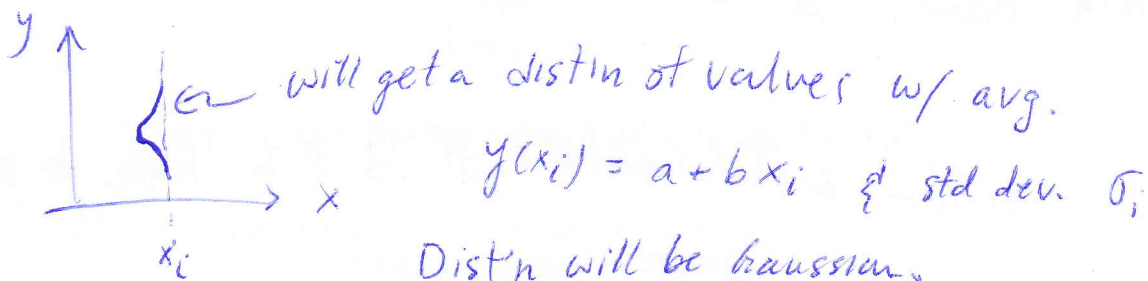 y
will get a dist'n of values w/ avg.
y(x_i) = a + b x_i & std dev. σ_i
x
x_i
Dist'n will be Gaussian.